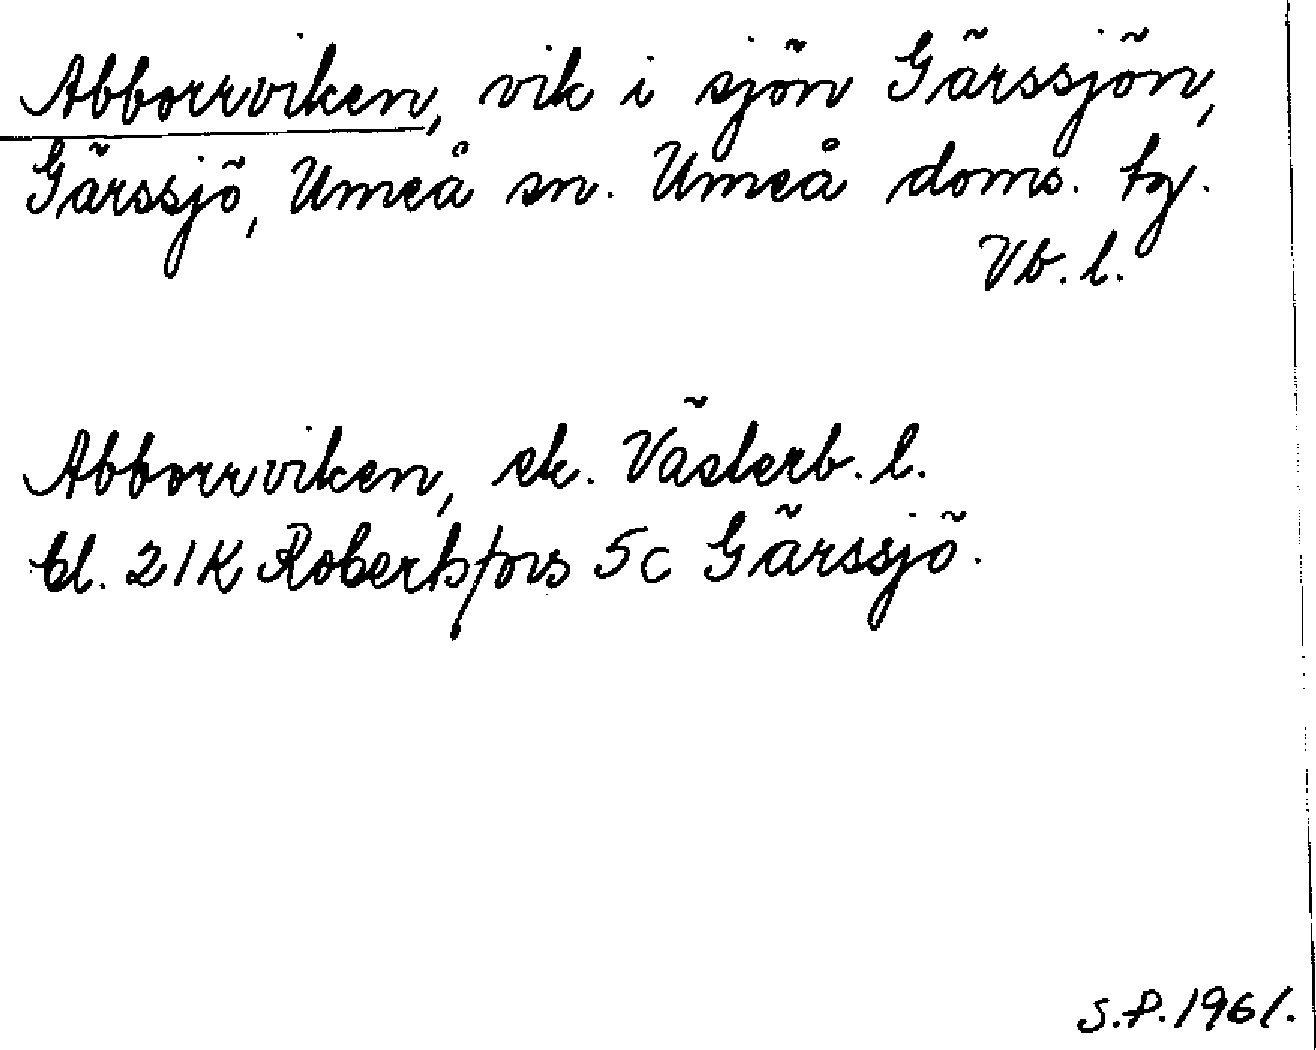 Abborrviken, vik i sjön Gärssjön,
Gärssjö, Umeå sn. Umeå doms. tg.
Vb. l.
Abborrviken, ek. Västerb. l.
bl. 21K Robertsfors 5c Gärssjö.
S.P. 1961.